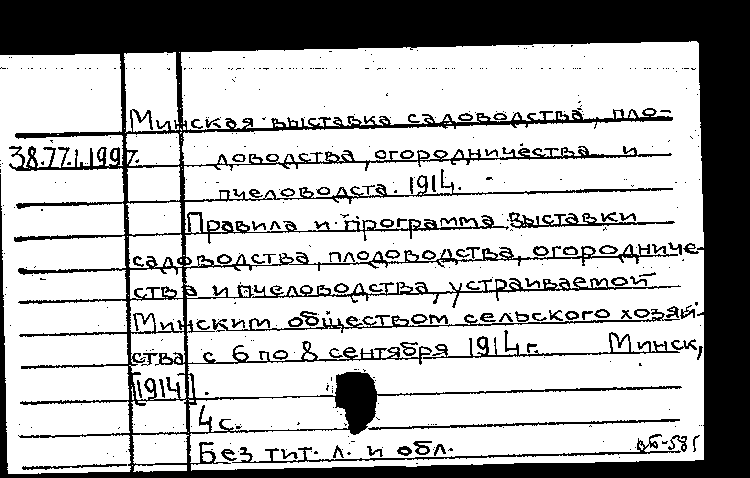 Минская выставка садоводства, пло-
38.77.1.1997. доводства, огородничества и
пчеловодста. 1914.
Правила и программа выставки
садоводства, плодоводства, огородниче-
ства и пчеловодства, устраиваемой
Минским обществом сельского хозяй-
ства с 6 по 8 сентября 1914 г. Минск,
[1914].
4 с.
Без тит. л. и обл.